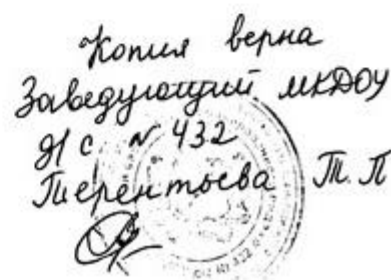 Копия верна
Заведующий МКДОУ
д/с № 432
Терентьева Т.П